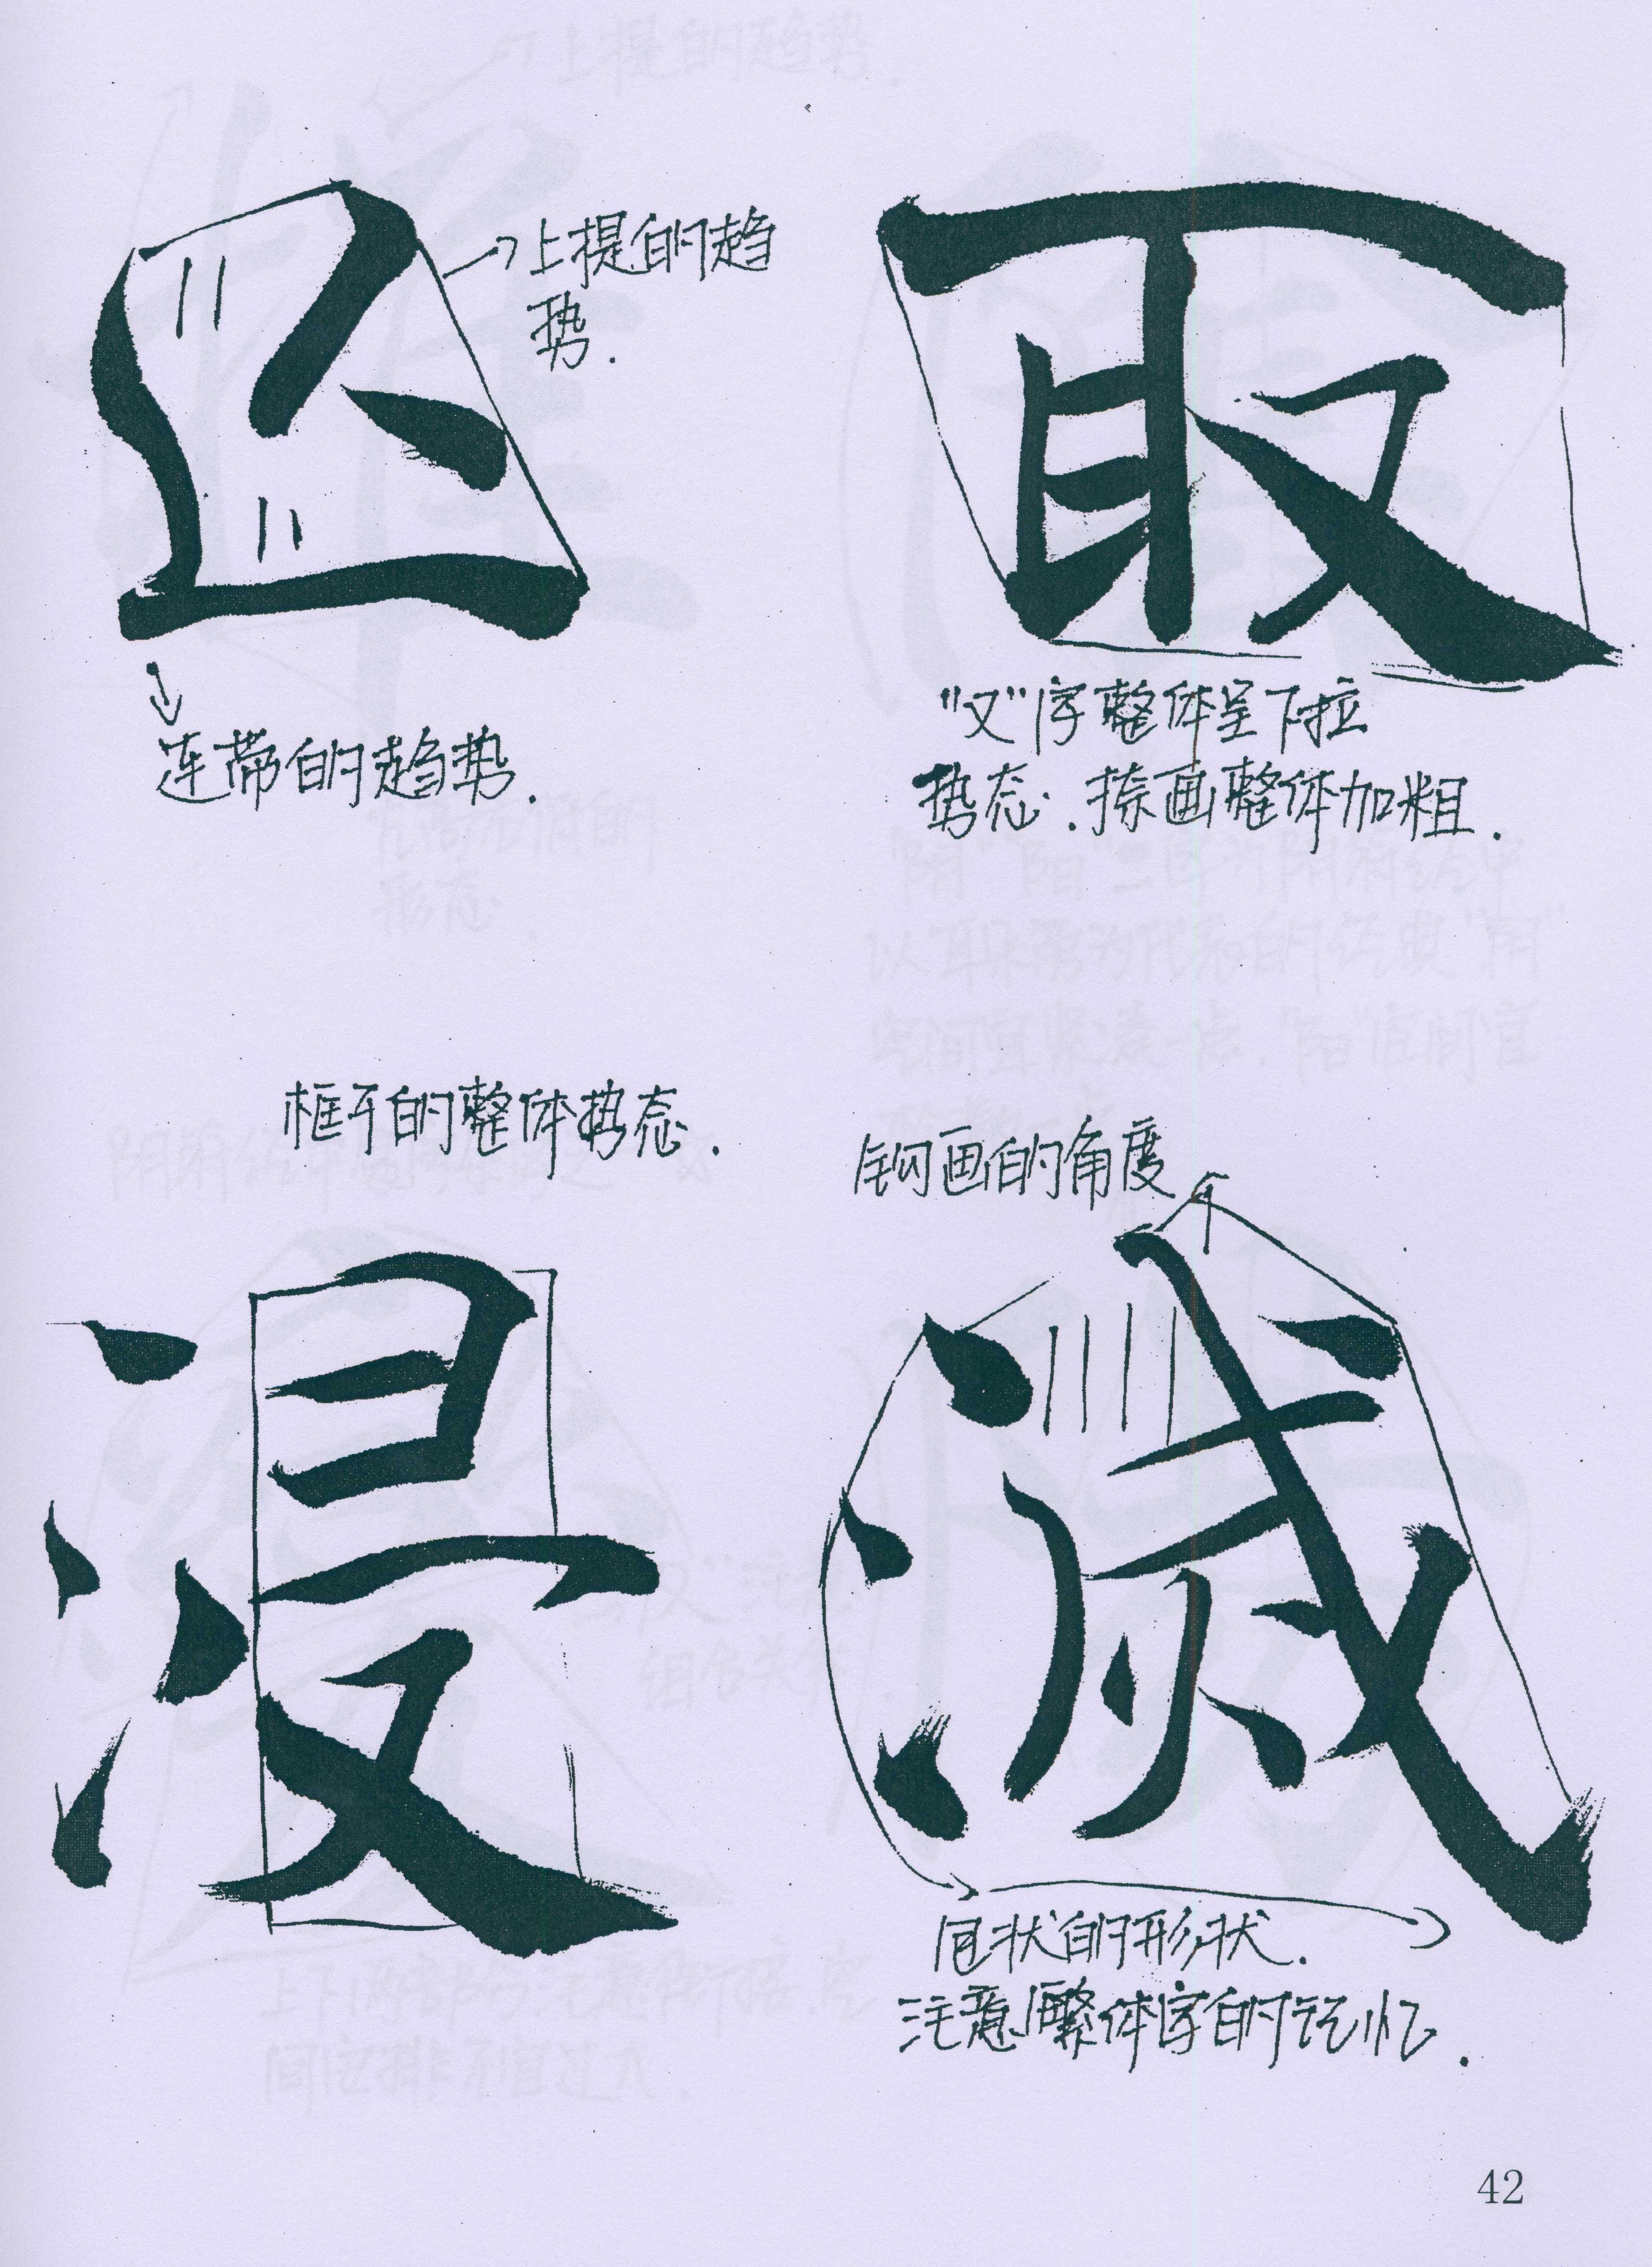 亾
上提的趋
势.
连带的趋势.
取
"又"字整体呈下拉
势态.捺画整体加粗.
的整体势态.
浸
钩画的角度
滅
状的形状.
注意繁体字的记忆.
42